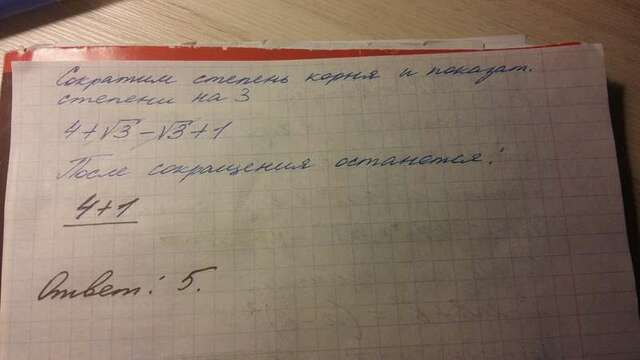 Сократим степень корня и показат.
степени на 3
4+√3-√3+1
После сокращения останется:
4+1
Ответ: 5.